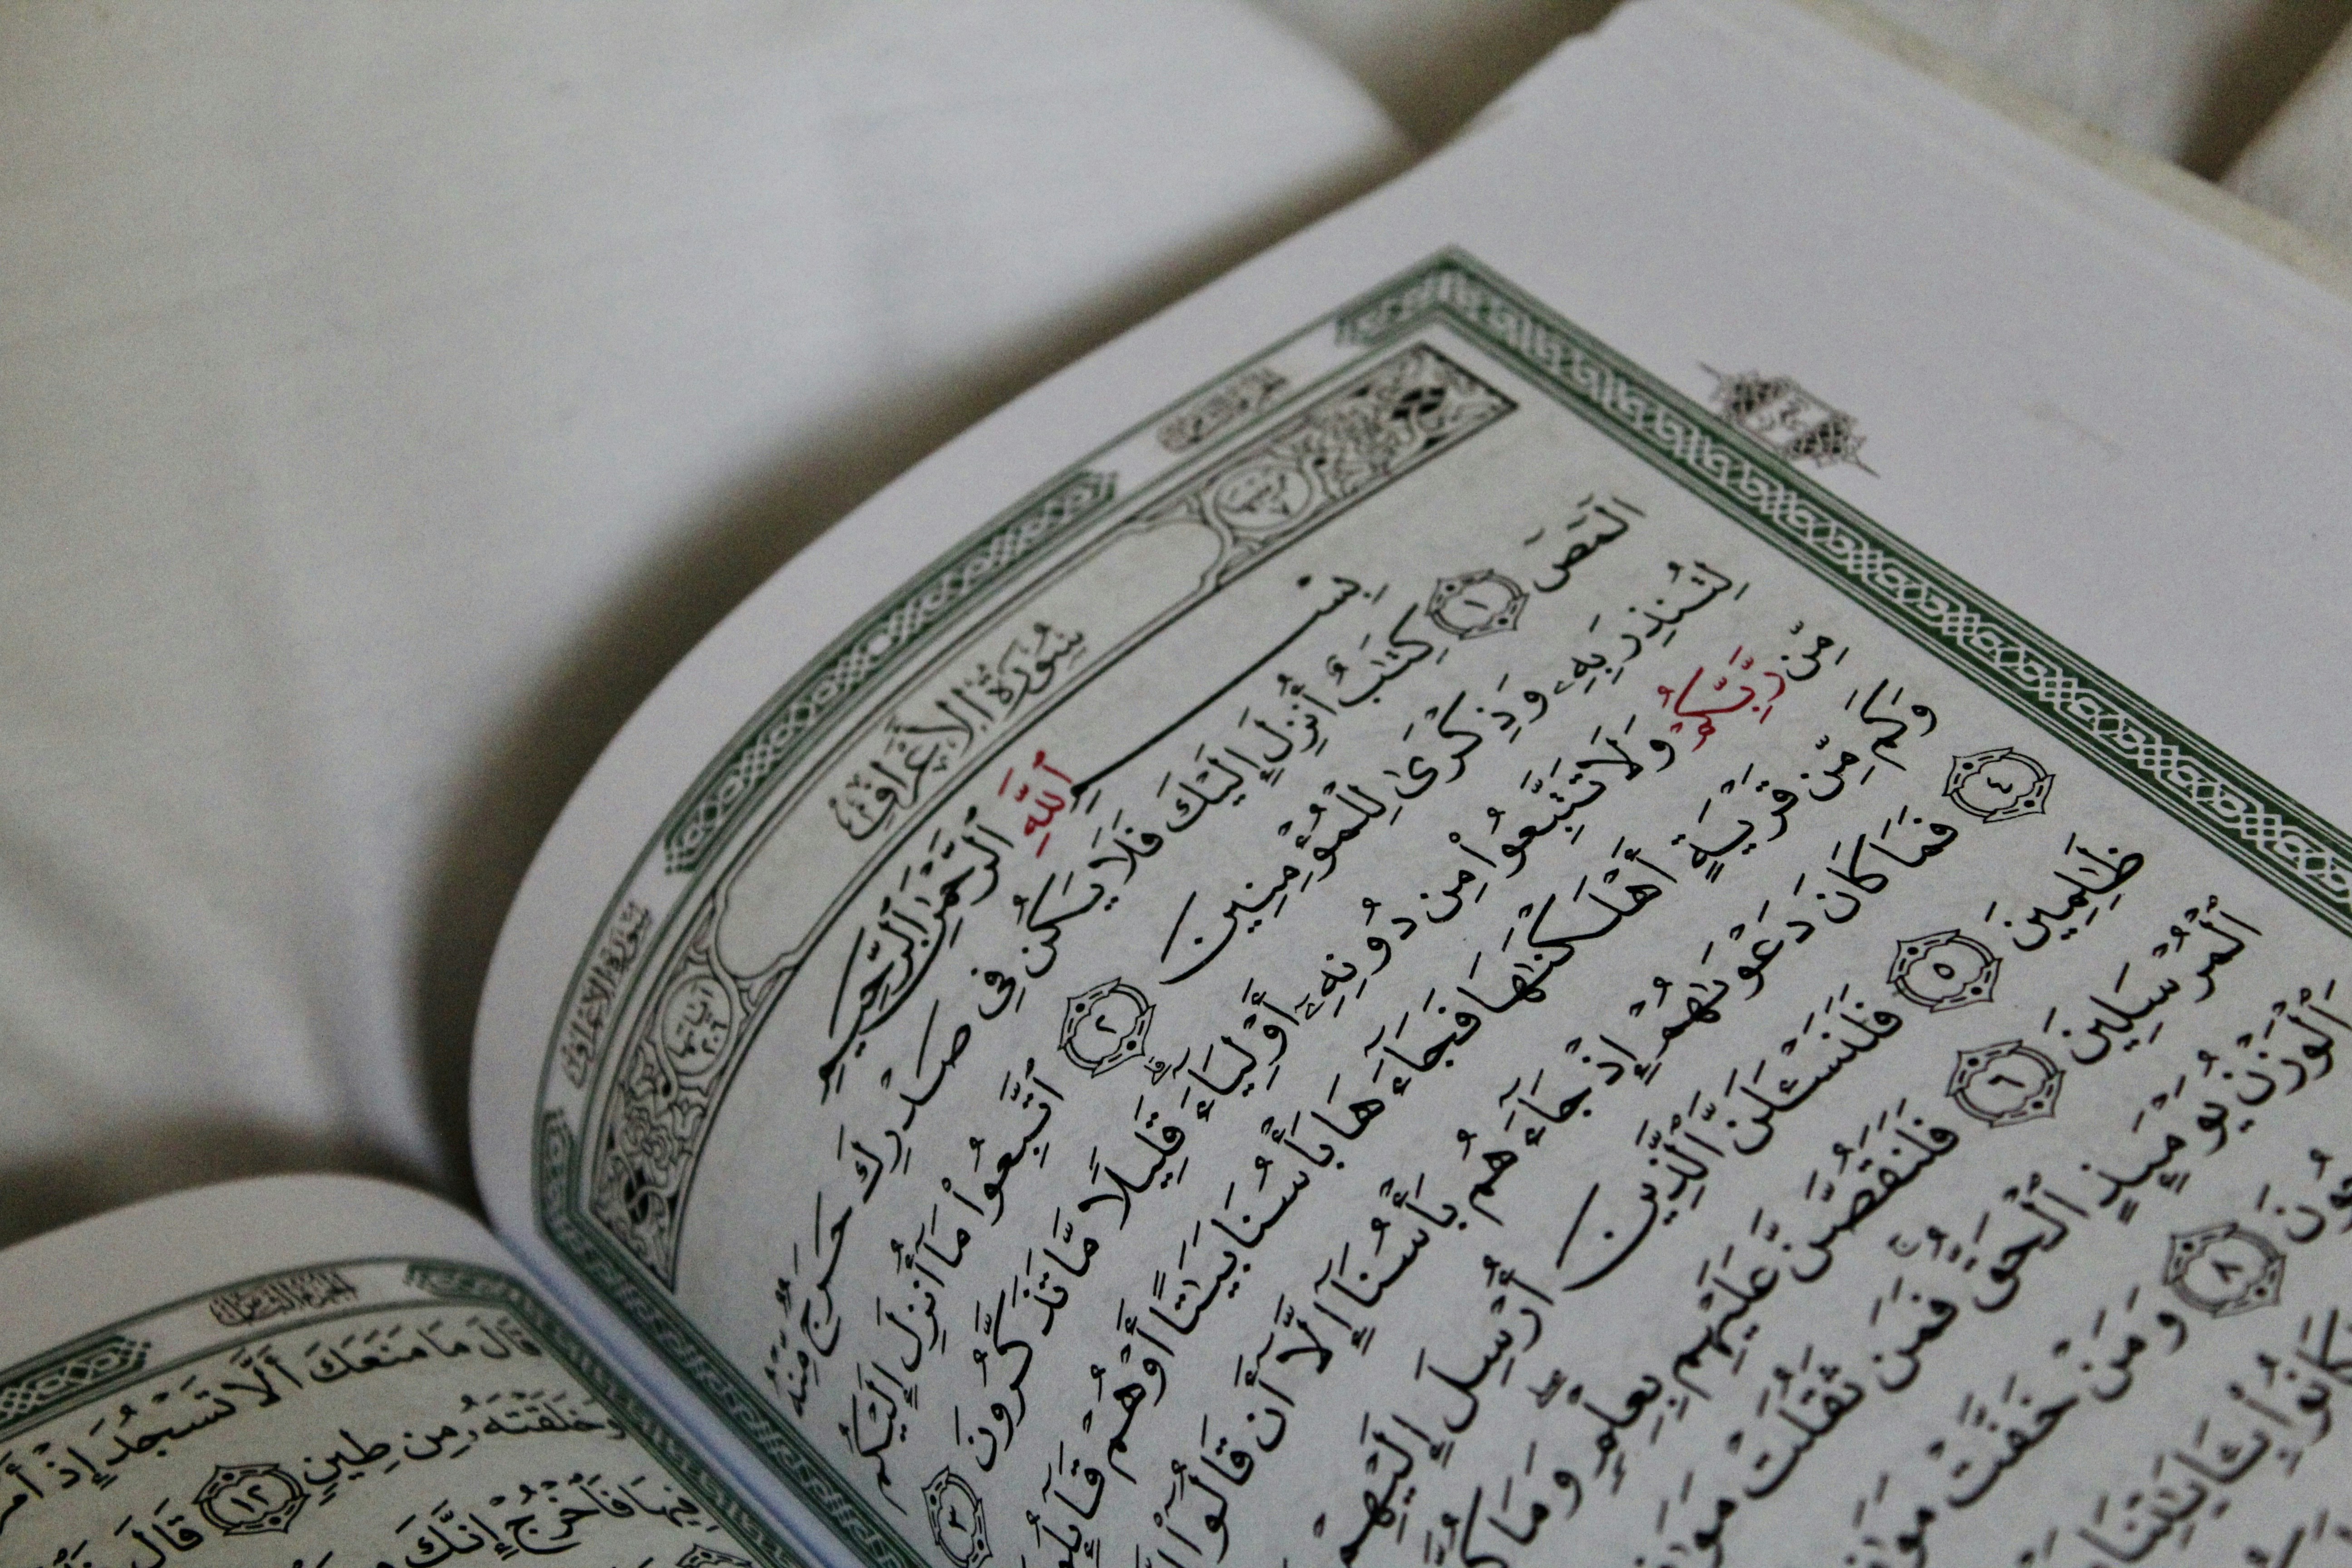 سُورَةُ الأَعْرَافِ
بِسْمِ ٱللَّهِ ٱلرَّحْمَٰنِ ٱلرَّحِيمِ
الٓمٓصٓ ١ كِتَٰبٌ أُنزِلَ إِلَيْكَ فَلَا يَكُن فِى صَدْرِكَ حَرَجٌ مِّنْهُ
لِتُنذِرَ بِهِۦ وَذِكْرَىٰ لِلْمُؤْمِنِينَ ٢ ٱتَّبِعُوا۟ مَآ أُنزِلَ إِلَيْكُم
مِّن رَّبِّكُمْ وَلَا تَتَّبِعُوا۟ مِن دُونِهِۦٓ أَوْلِيَآءَ ۗ قَلِيلًا مَّا تَذَكَّرُونَ ٣
وَكَم مِّن قَرْيَةٍ أَهْلَكْنَٰهَا فَجَآءَهَا بَأْسُنَا بَيَٰتًا أَوْ هُمْ قَآئِلُو
٤ فَمَا كَانَ دَعْوَىٰهُمْ إِذْ جَآءَهُم بَأْسُنَآ إِلَّآ أَن قَالُوٓا۟
ظَٰلِمِينَ ٥ فَلَنَسْـَٔلَنَّ ٱلَّذِينَ أُرْسِلَ إِلَيْهِمْ
ٱلْمُرْسَلِينَ ٦ فَلَنَقُصَّنَّ عَلَيْهِم بِعِلْمٍ ۖ وَمَا كُ
ٱلْوَزْنُ يَوْمَئِذٍ ٱلْحَقُّ ۚ فَمَن ثَقُلَتْ مَوَٰ
ـحُونَ ٨ وَمَنْ خَفَّتْ مَوَٰ
كَانُوا۟ بِـَٔايَٰتِنَا
قَالَ مَا مَنَعَكَ أَلَّا تَسْجُدَ إِذْ أَمَرْ
وَخَلَقْتَهُۥ مِن طِينٍ ١٢ قَالَ
فِيهَا فَٱخْرُجْ إِنَّكَ